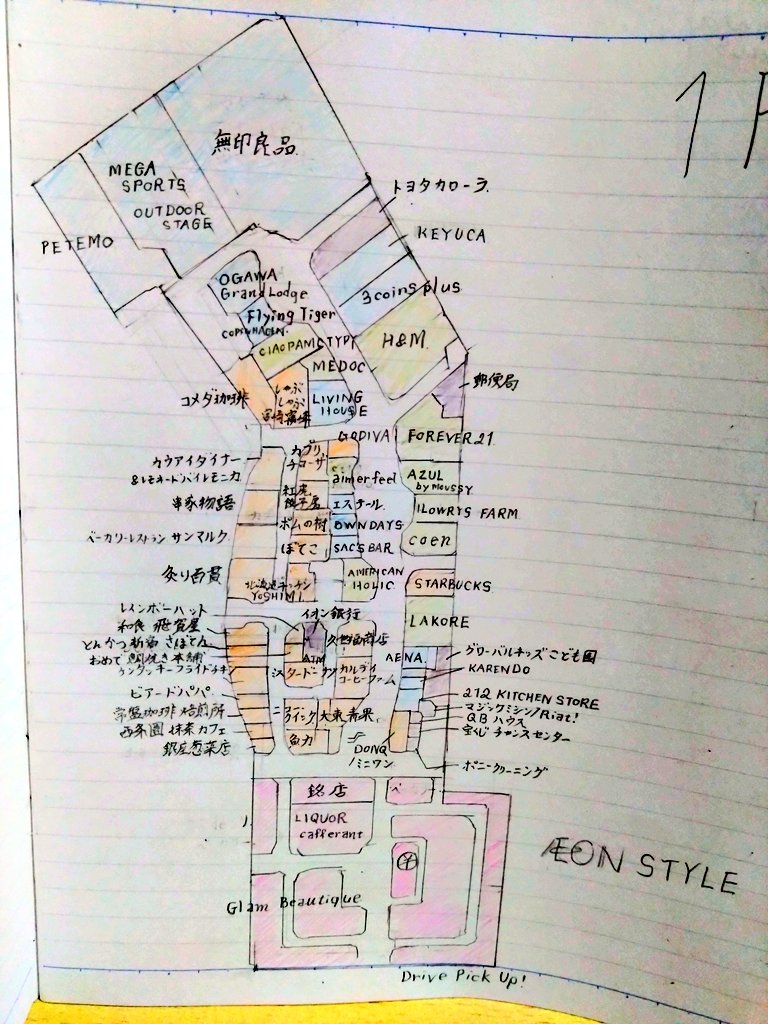 1
無印良品
MEGA
SPORTS
OUTDOOR
STAGE
PETEMO
トヨタカローラ
KEYUCA
3coins plus
H&M
OGAWA
Grand Lodge
Flying Tiger
COPENHAGEN
CIAOPANIC TYPY
MEDOC
LIVING
HOUSE
コメダ珈琲
しゃぶ
しゃぶ
郵便局
GODIVA
FOREVER21
カプリ
チョーザ
カウアイダイナー
&レモネードバイレモニカ
aimerfeel
AZUL
by moussy
串家物語
紅虎
餃子房
エステール
LOWRYS FARM
ベーカリーレストラン サンマルク
ポムの樹
OWNDAYS
coen
ぼてこ
SAC'S BAR
北海道キッチン
YOSHIMI
AMERICAN
HOLIC
STARBUCKS
LAKORE
レインボーハット
イオン銀行
和食 飛賀屋
とんかつ新宿 さぼてん
久世福商店
おめで鯛焼き本舗
ATM
AENA
グローバルキッズこども園
ケンタッキーフライドチキン
ミスタードーナツ
カルディ
コーヒーファーム
KARENDO
ビアードパパ
212 KITCHEN STORE
常盤珈琲焙煎所
大東青果
マジックミシン/Riat!
西条園 抹茶カフェ
QBハウス
銀座惣菜店
魚力
DONQ
/ミニワン
宝くじ チャンスセンター
ポニークリーニング
銘店
LIQUOR
cafferant
ÆON STYLE
Glam Beautique
Drive Pick Up!